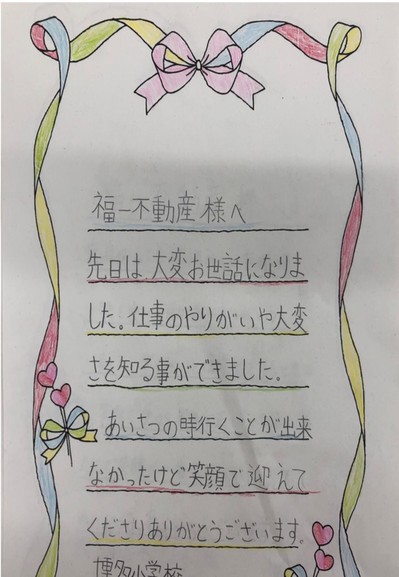 福一不動産様へ
先日は大変お世話になりま
した。仕事のやりがいや大変
さを知る事ができました。
あいさつの時行くことが出来
なかったけど笑顔で迎えて
くださりありがとうございます。
博多小学校